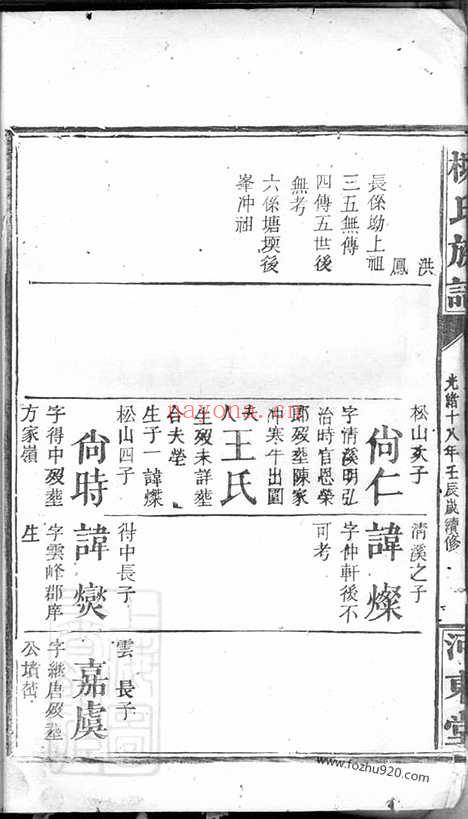 楊氏族譜
光緒十八年壬辰歲續修
河東堂
洪
鳳
長係坳上祖
三五無傳
四傳五世後
無考
六係塘堧後
峯冲祖
松山次子
尚仁
字清溪明弘
治時官恩榮
郎歿塟陳家
冲寒牛出圍
夫人王氏
生歿未詳塟
谷夫塋
生子一諱燦
松山四子
尚時
字得中歿塟
方家嶺
清溪之子
諱燦
字仲軒後不
可考
得中長子
諱爕
字雲峰郡庠
生
雲長子
嘉虞
字繼唐歿塟
公墳
www.fozhu920.com